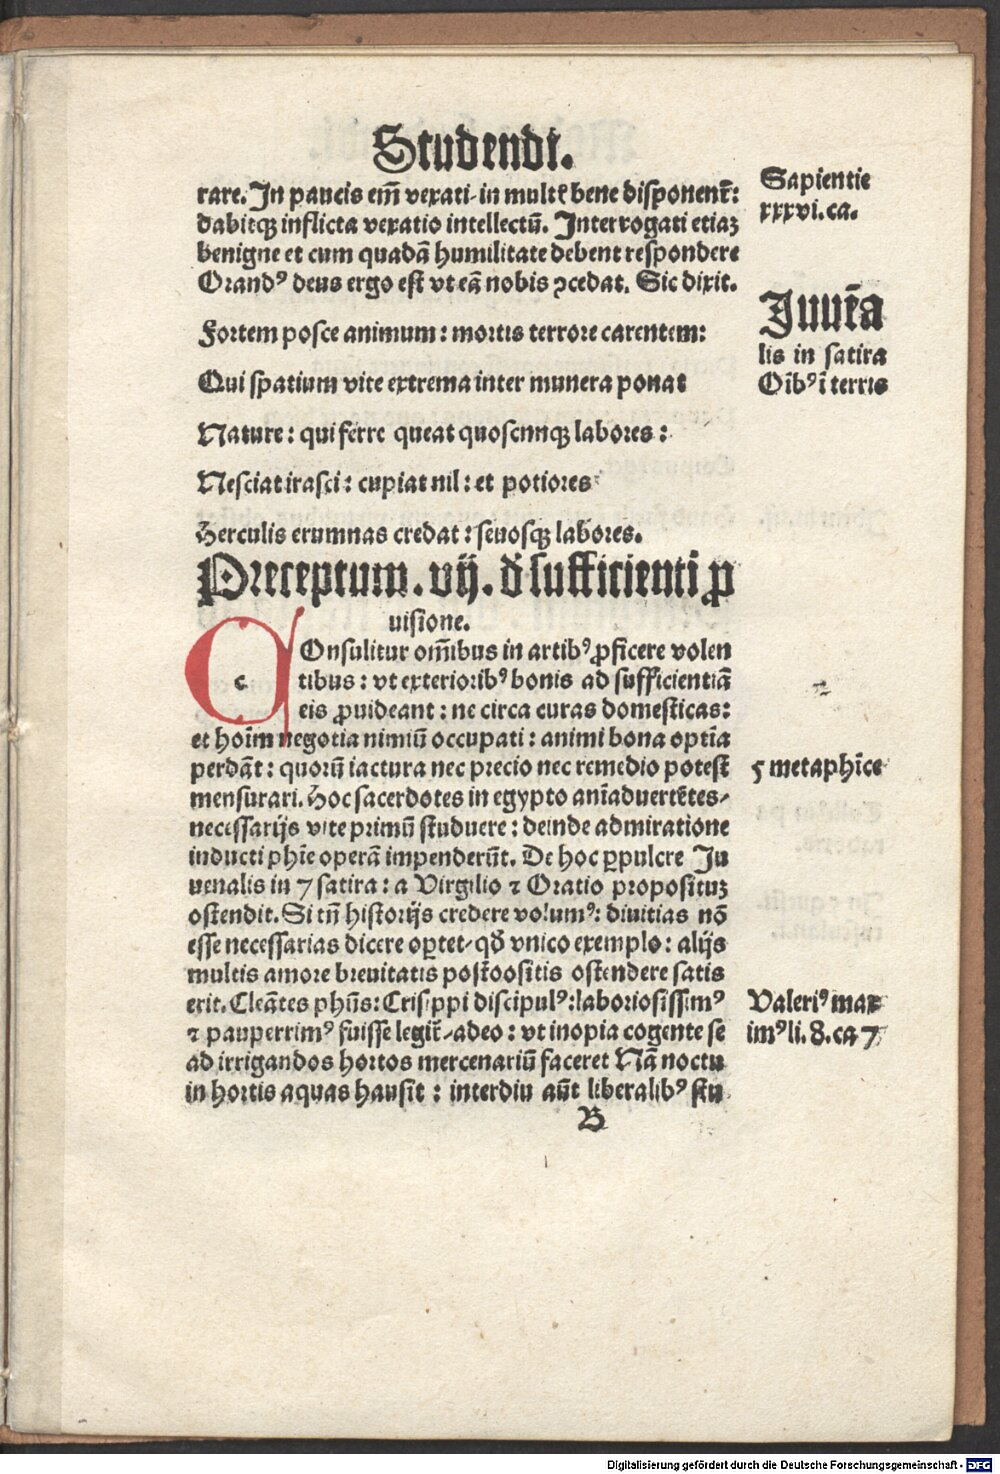 Studendi.
rare. In paucis em̄ vexati-in multꝭ bene disponent̄:
dabitqꝫ inflicta vexatio intellectū. Interrogati etiaꝫ
benigne et cum quadā humilitate debent respondere
Orandꝰ deus ergo est vt eā nobis ꝯcedat. Sic dixit.
Sapientie
xxxvi. ca.
Fortem posce animum: mortis terrore carentem:
Qui spatium vite extrema inter munera ponat
Nature: qui ferre queat quoscunqꝫ labores:
Nesciat irasci: cupiat nil: et potiores
Herculis erumnas credat: seuosqꝫ labores.
Juuēa
lis in satira
Oīb⁹ ī terris
Preceptum. vij. đ sufficienti ꝓ
uisione.
c
Onsulitur om̄ibus in artibꝰ ꝓficere volen
tibus: vt exterioribꝰ bonis ad sufficientiā
eis ꝓuideant: ne circa curas domesticas:
et hoīm negotia nimiū occupati: animi bona optīa
perdāt: quorū iactura nec precio nec remedio potest
mensurari. Hoc sacerdotes in egypto aniaduertētes-
necessarijs vite primū studuere: deinde admiratione
inducti phīe operā impenderūt. De hoc ꝑpulcre Ju
uenalis in 7 satira: a Virgilio ⁊ Oratio proposituꝫ
ostendit. Si tn̄ historijs credere volumꝰ: diuitias nō
esse necessarias dicere oꝑtet-qđ vnico exemplo: alijs
multis amore breuitatis postoositis ostendere satis
erit. Cleātes phūs: Crisippi discipulꝰ: laboriosissimꝰ
⁊ pauperrimꝰ fuisse legit̄-adeo: vt inopia cogente se
ad irrigandos hortos mercenariū faceret Nā noctu
in hortis aquas hausit: interdiu aūt liberalibꝰ stu
5 metaphīce
Valeriꝰ max
imꝰ li. 8. ca 7
B
Digitalisierung gefördert durch die Deutsche Forschungsgemeinschaft - DFG